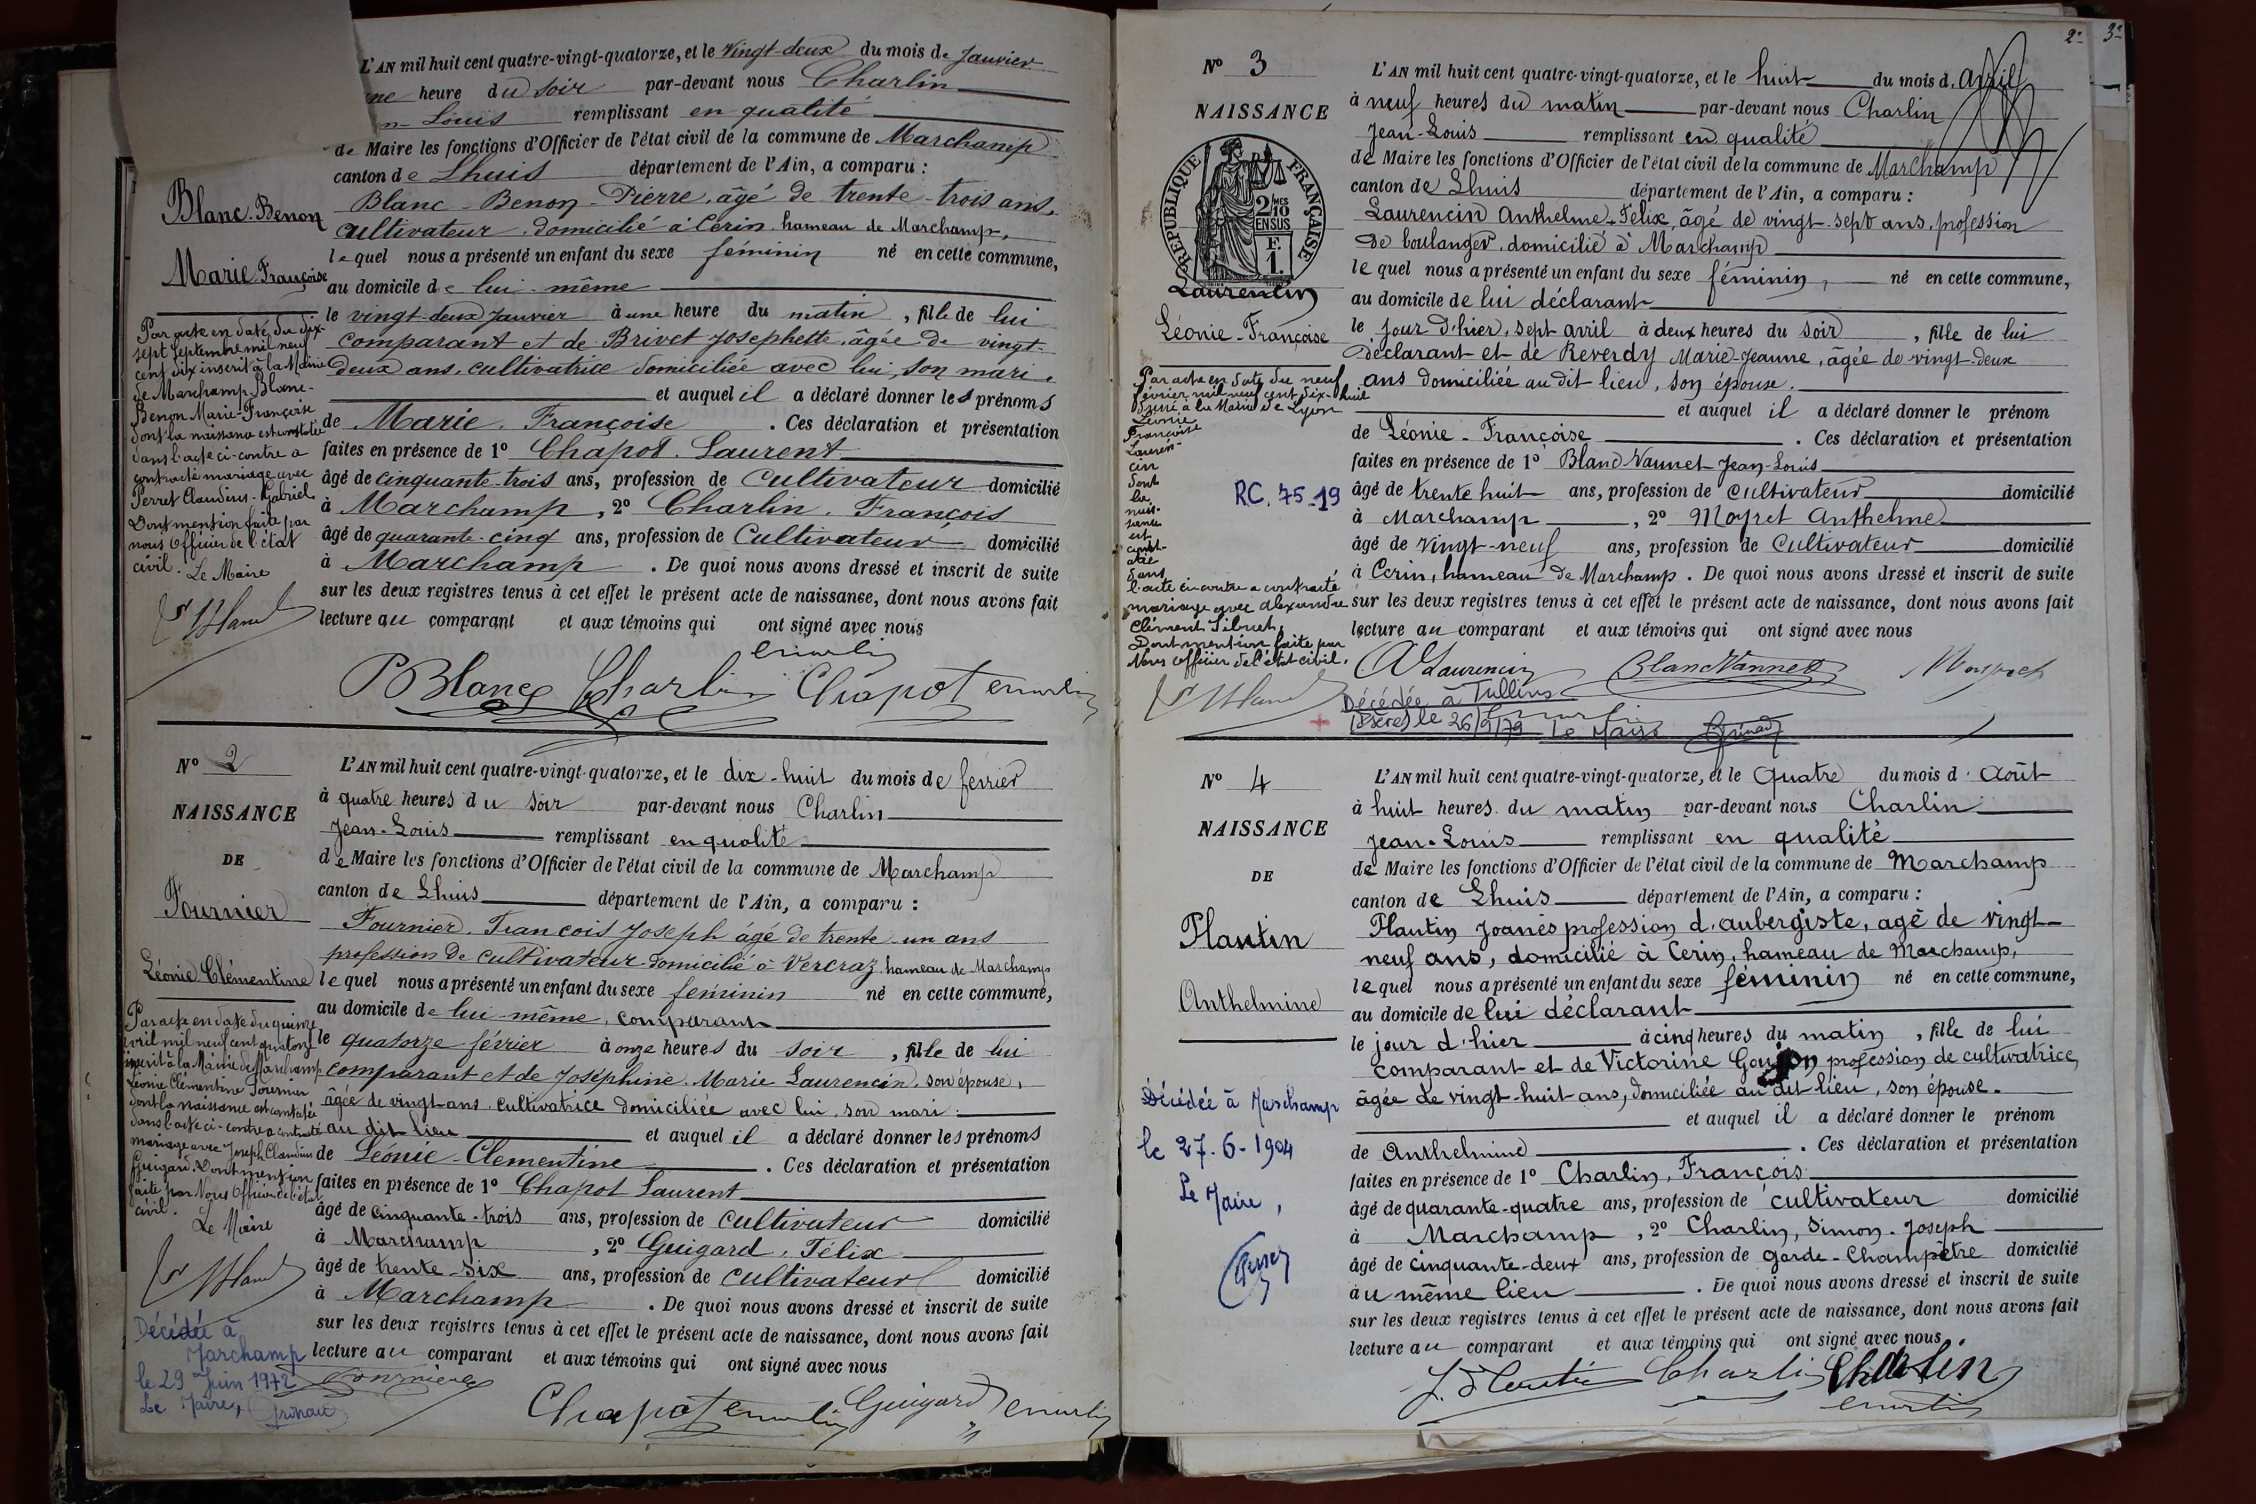 L'AN mil huit cent quatre-vingt-quatorze, et le vingt-deux du mois de Janvier
une heure du soir par-devant nous Charlin
Louis remplissant en qualité
de Maire les fonctions d'Officier de l'état civil de la commune de Marchamp
canton de Lhuis département de l'Ain, a comparu :
Blanc-Benon-Pierre, âgé de trente-trois ans,
cultivateur, domicilié à Cerin, hameau de Marchamp,
lequel nous a présenté un enfant du sexe féminin né en cette commune,
au domicile de lui-même
le vingt-deux Janvier à une heure du matin, fille de lui
comparant et de Brivet Josephette, âgée de vingt-
deux ans, cultivatrice domiciliée avec lui, son mari.
et auquel il a déclaré donner les prénoms
de Marie, Françoise . Ces déclaration et présentation
faites en présence de 1º Chapot, Laurent
âgé de cinquante-trois ans, profession de cultivateur domicilié
à Marchamp, 2º Charlin, François
âgé de quarante-cinq ans, profession de Cultivateur domicilié
à Marchamp . De quoi nous avons dressé et inscrit de suite
sur les deux registres tenus à cet effet le présent acte de naissance, dont nous avons fait
lecture au comparant et aux témoins qui ont signé avec nous
PBlanc Charlin Chapot
Blanc-Benon
Marie-Françoise
Par acte en date du dix-
sept septembre mil neuf
cent dix inscrit à la Mairie
de Marchamp Blanc-
Benon Marie-Françoise
dont la naissance est constatée
dans l'acte ci-contre a
contracté mariage avec
Perret Claudius-Gabriel
Dont mention faite par
nous officier de l'état
civil. Le Maire
Nº 2
NAISSANCE
DE
Fournier
Léonie Clémentine
L'AN mil huit cent quatre-vingt-quatorze, et le dix-huit du mois de février
à quatre heures du soir par-devant nous Charlin
Jean-Louis remplissant en qualité
de Maire les fonctions d'Officier de l'état civil de la commune de Marchamp
canton de Lhuis département de l'Ain, a comparu :
Fournier, François Joseph âgé de trente-un ans
profession de cultivateur domicilié à Vercraz, hameau de Marchamp
lequel nous a présenté un enfant du sexe feminin né en cette commune,
au domicile de lui-même, comparant
le quatorze février à onze heures du soir, fille de lui
comparant et de Joséphine Marie Laurencin, son épouse,
âgée de vingt ans, cultivatrice domiciliée avec lui, son mari
au dit lieu et auquel il a déclaré donner les prénoms
de Léonie-Clementine . Ces déclaration et présentation
faites en présence de 1º Chapot Laurent
âgé de cinquante-trois ans, profession de cultivateur domicilié
à Marchamp, 2º Guigard, Félix
âgé de trente-six ans, profession de cultivateur domicilié
à Marchamp . De quoi nous avons dressé et inscrit de suite
sur les deux registres tenus à cet effet le présent acte de naissance, dont nous avons fait
lecture au comparant et aux témoins qui ont signé avec nous
Chapot Guigard
Par acte en date du quinze
avril mil neuf cent quatorze
inscrit à la Mairie de Marchamp
Léonie Clémentine Fournier
dont la naissance est constatée
dans l'acte ci-contre a contracté
mariage avec Joseph Claudius
Guigard. Dont mention
faite par Nous Officier de l'état
civil.
Le Maire
Décédée à
Marchamp
le 29 Juin 1972
Le Maire,
2e 3e
Nº 3
NAISSANCE
REPUBLIQUE FRANÇAISE
2 MES 10
EN SUS
F. 1.
Laurencin
Léonie-Françoise
L'AN mil huit cent quatre-vingt-quatorze, et le huit du mois d. Avril
à neuf heures du matin par-devant nous Charlin
Jean-Louis remplissant en qualité
de Maire les fonctions d'Officier de l'état civil de la commune de Marchamp
canton de Lhuis département de l'Ain, a comparu :
Laurencin Anthelme-Félix, âgé de vingt-sept ans, profession
de boulanger, domicilié à Marchamp
lequel nous a présenté un enfant du sexe féminin, né en cette commune,
au domicile de lui déclarant
le jour d'hier, sept avril à deux heures du soir, fille de lui
déclarant et de Reverdy Marie-Jeanne, âgée de vingt-deux
ans domiciliée au dit lieu, son épouse.
et auquel il a déclaré donner le prénom
de Léonie-Françoise . Ces déclaration et présentation
faites en présence de 1º Blanc-Vannet Jean-Louis
âgé de trente huit ans, profession de cultivateur domicilié
à Marchamp, 2º Moyret Anthelme
âgé de vingt-neuf ans, profession de Cultivateur domicilié
à Cerin, hameau de Marchamp . De quoi nous avons dressé et inscrit de suite
sur les deux registres tenus à cet effet le présent acte de naissance, dont nous avons fait
lecture au comparant et aux témoins qui ont signé avec nous
Laurencin BlancVannet
Par acte en date du neuf
février mil neuf cent dix-huit
à la Mairie de Lyon
Léonie
Françoise
Lauren-
cin
dont
la
nais-
sance
est
const-
atée
dans
l'acte ci-contre a contracté
mariage avec Alexandre
Clément
Dont mention faite par
Nous officier de l'état civil.
RC. 75-19
Décédée à Tullins
(Isère) le 26/9/79 Le Maire
Nº 4
NAISSANCE
DE
Plantin
Anthelmine
L'AN mil huit cent quatre-vingt-quatorze, et le Quatre du mois d' Août
à huit heures du matin par-devant nous Charlin
Jean-Louis remplissant en qualité
de Maire les fonctions d'Officier de l'état civil de la commune de Marchamp
canton de Lhuis département de l'Ain, a comparu :
Plantin Joanès profession d'aubergiste, agé de vingt-
neuf ans, domicilié à Cerin, hameau de Marchamp,
lequel nous a présenté un enfant du sexe féminin né en cette commune,
au domicile de lui déclarant
le jour d'hier à cinq heures du matin, fille de lui
comparant et de Victorine Goujon profession de cultivatrice,
âgée de vingt-huit ans, domiciliée au dit lieu, son épouse.
et auquel il a déclaré donner le prénom
de Anthelmine . Ces déclaration et présentation
faites en présence de 1º Charlin, François
âgé de quarante-quatre ans, profession de cultivateur domicilié
à Marchamp, 2º Charlin, Simon-Joseph
âgé de cinquante-deux ans, profession de garde-Champêtre domicilié
au même lieu . De quoi nous avons dressé et inscrit de suite
sur les deux registres tenus à cet effet le présent acte de naissance, dont nous avons fait
lecture au comparant et aux témoins qui ont signé avec nous
Charlin Charlin
Décédée à Marchamp
le 27-6-1904
Le Maire,